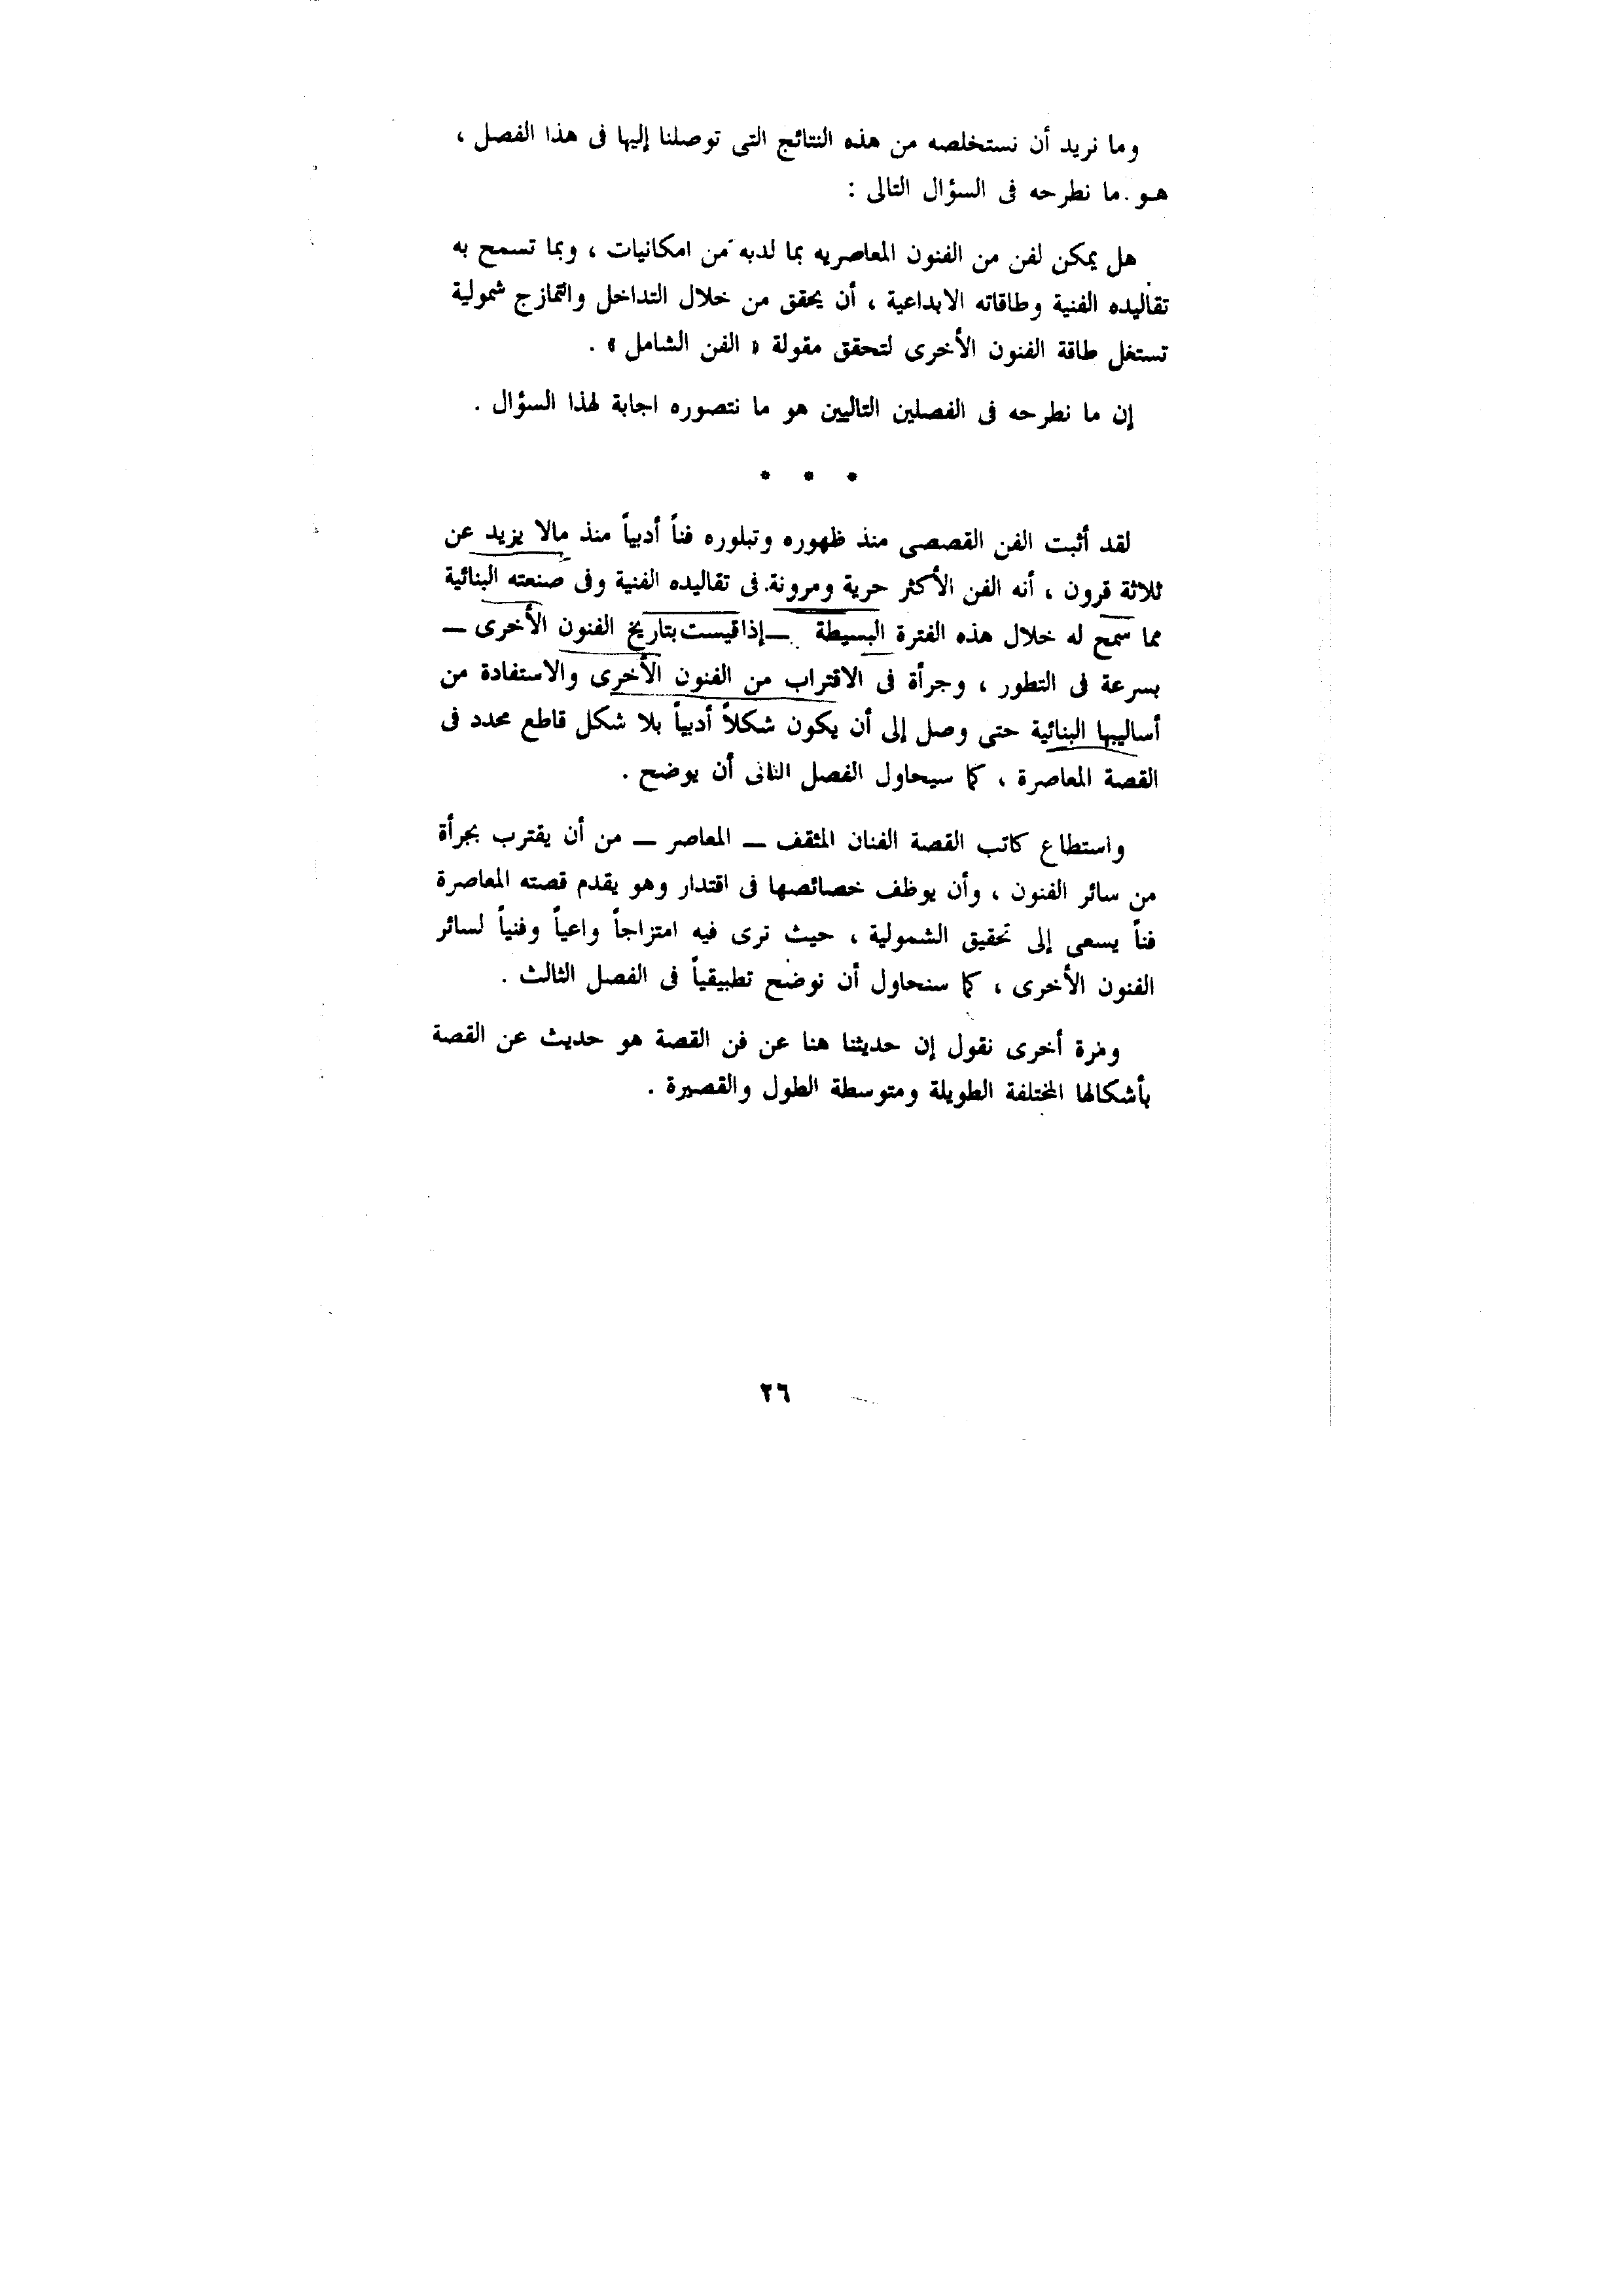 وما نريد أن نستخلصه من هذه النتائج التى توصلنا إليها فى هذا الفصل ،
هـو ما نطرحه فى السؤال التالى :
هل يمكن لفن من الفنون المعاصريه بما لديه من امكانيات ، وبما تسمح به
تقاليده الفنية وطاقاته الابداعية ، أن يحقق من خلال التداخل والتمازج شمولية
تستغل طاقة الفنون الأخرى لتحقق مقولة « الفن الشامل » .
إن ما نطرحه فى الفصلين التاليين هو ما نتصوره اجابة لهذا السؤال .
* * *
لقد أثبت الفن القصصى منذ ظهوره وتبلوره فناً أدبياً منذ مالا يزيد عن
ثلاثة قرون ، أنه الفن الأكثر حرية ومرونة فى تقاليده الفنية وفى صنعته البنائية
مما سمح له خلال هذه الفترة البسيطة ــ إذا قيست بتاريخ الفنون الأخرى ــ
بسرعة فى التطور ، وجرأة فى الاقتراب من الفنون الأخرى والاستفادة من
أساليبها البنائية حتى وصل إلى أن يكون شكلاً أدبياً بلا شكل قاطع محدد فى
القصة المعاصرة ، كما سيحاول الفصل الثانى أن يوضح .
واستطاع كاتب القصة الفنان المثقف ــ المعاصر ــ من أن يقترب بجرأة
من سائر الفنون ، وأن يوظف خصائصها فى اقتدار وهو يقدم قصته المعاصرة
فناً يسعى إلى تحقيق الشمولية ، حيث ترى فيه امتزاجاً واعياً وفنياً لسائر
الفنون الأخرى ، كما سنحاول أن نوضح تطبيقياً فى الفصل الثالث .
ومرة أخرى نقول إن حديثنا هنا عن فن القصة هو حديث عن القصة
بأشكالها المختلفة الطويلة ومتوسطة الطول والقصيرة .
٢٦